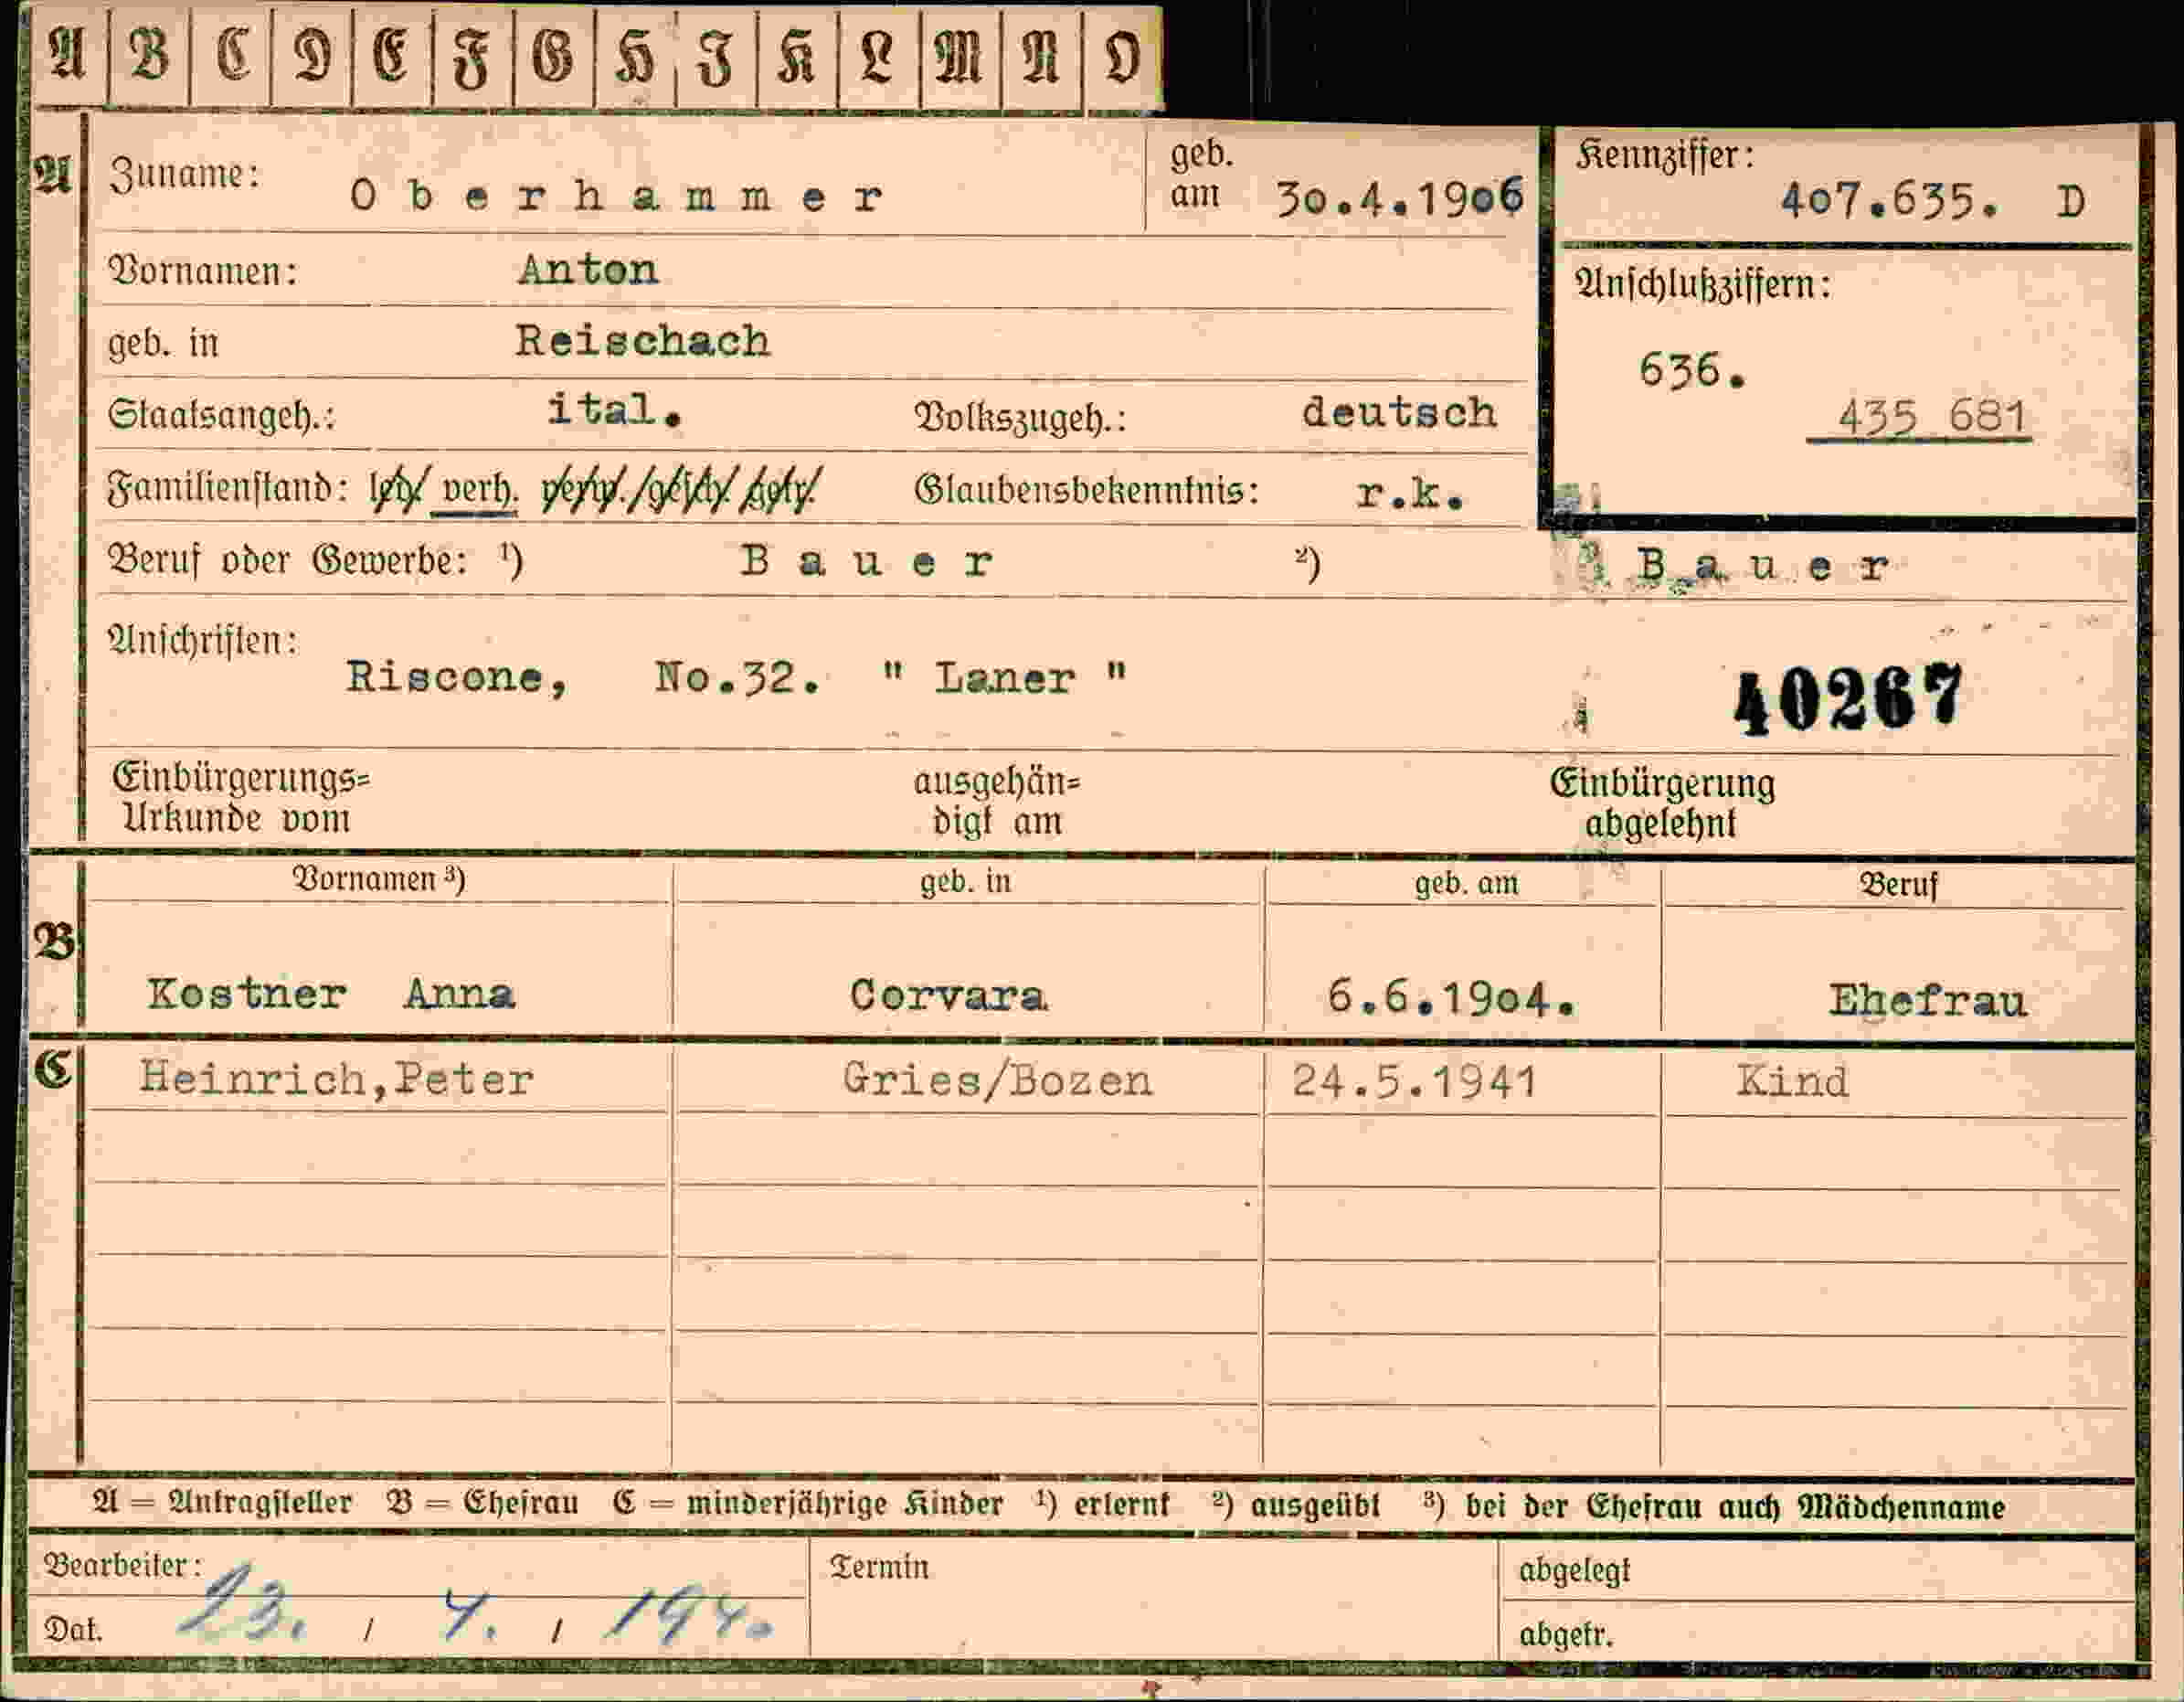 A B C D E F G H I K L M N O
A Zuname: Oberhammer geb. am 30.4.1906 Kennziffer: 407.635. D
Vornamen: Anton
Anschlußziffern:
geb. in Reischach
636.
Staatsangeh.: ital. Volkszugeh.: deutsch
435 681
Familienstand: led. verh. verw. gesch. getr. Glaubensbekenntnis: r.k.
Beruf oder Gewerbe: ¹) Bauer ²) Bauer
Anschriften:
Riscone, No.32. " Laner "
40267
Einbürgerungs= ausgehän= Einbürgerung
Urkunde vom digt am abgelehnt
Vornamen ³) geb. in geb. am Beruf
B
Kostner Anna Corvara 6.6.1904. Ehefrau
C Heinrich,Peter Gries/Bozen 24.5.1941 Kind
A = Antragsteller B = Ehefrau C = minderjährige Kinder ¹) erlernt ²) ausgeübt ³) bei der Ehefrau auch Mädchenname
Bearbeiter: Termin abgelegt
Dat. 23. / 4. / 194. abgetr.